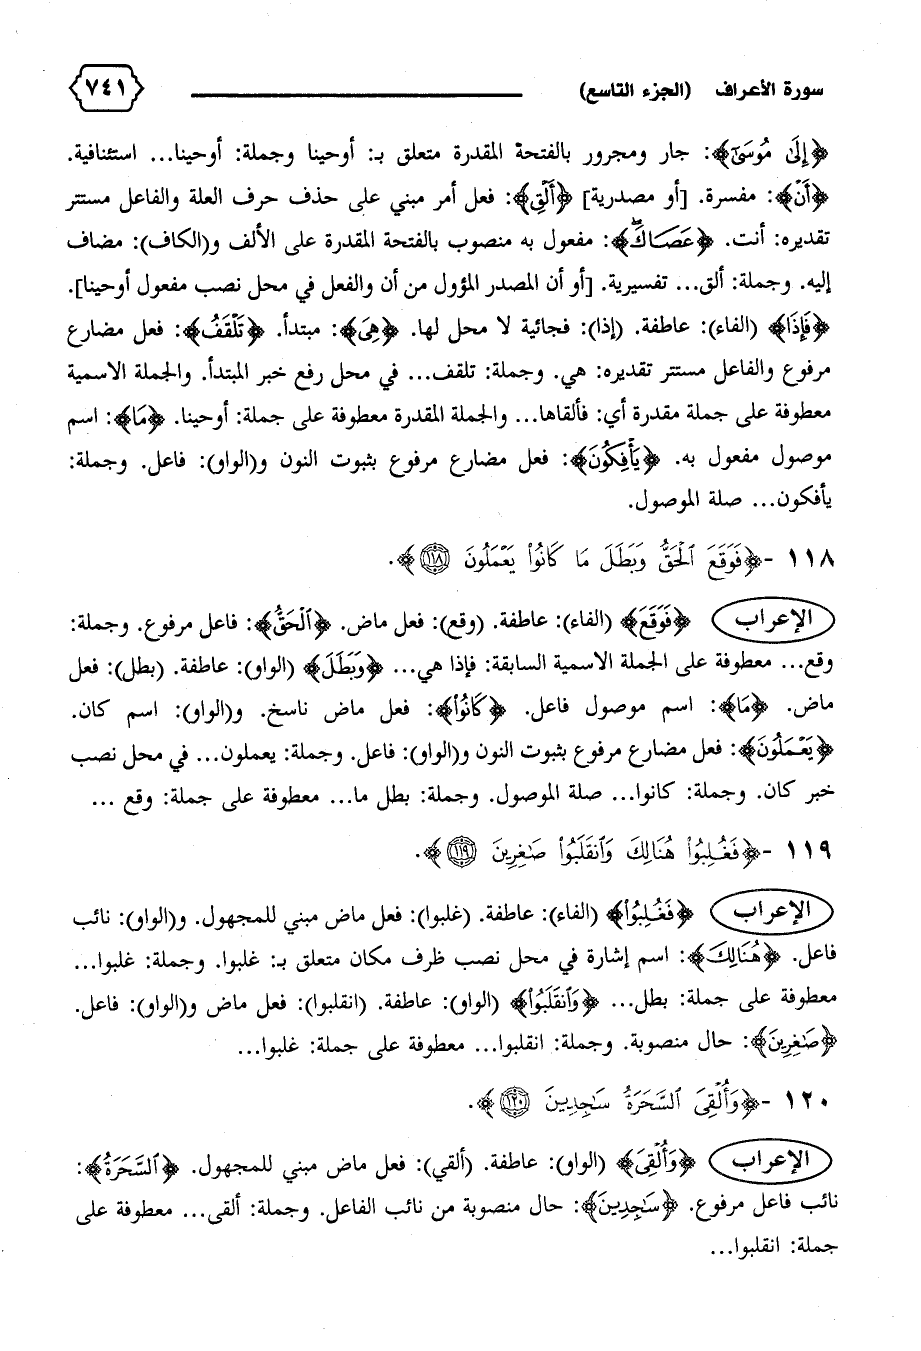 سورة الأعراف (الجزء التاسع) ٧٤١
﴿إِلَىٰ مُوسَىٰٓ﴾: جار ومجرور بالفتحة المقدرة متعلق بـ: أوحينا وجملة: أوحينا... استئنافية.
﴿أَنْ﴾: مفسرة. [أو مصدرية] ﴿أَلْقِ﴾: فعل أمر مبني على حذف حرف العلة والفاعل مستتر
تقديره: أنت. ﴿عَصَاكَۖ﴾: مفعول به منصوب بالفتحة المقدرة على الألف و(الكاف): مضاف
إليه. وجملة: ألق... تفسيرية. [أو أن المصدر المؤول من أن والفعل في محل نصب مفعول أوحينا].
﴿فَإِذَا﴾ (الفاء): عاطفة. (إذا): فجائية لا محل لها. ﴿هِىَ﴾: مبتدأ. ﴿تَلْقَفُ﴾: فعل مضارع
مرفوع والفاعل مستتر تقديره: هي. وجملة: تلقف... في محل رفع خبر المبتدأ. والجملة الاسمية
معطوفة على جملة مقدرة أي: فألقاها... والجملة المقدرة معطوفة على جملة: أوحينا. ﴿مَا﴾: اسم
موصول مفعول به. ﴿يَأْفِكُونَ﴾: فعل مضارع مرفوع بثبوت النون و(الواو): فاعل. وجملة:
يأفكون... صلة الموصول.
١١٨ -﴿فَوَقَعَ ٱلْحَقُّ وَبَطَلَ مَا كَانُوا۟ يَعْمَلُونَ ١١٨﴾.
الإعراب ﴿فَوَقَعَ﴾ (الفاء): عاطفة. (وقع): فعل ماض. ﴿ٱلْحَقُّ﴾: فاعل مرفوع. وجملة:
وقع... معطوفة على الجملة الاسمية السابقة: فإذا هي... ﴿وَبَطَلَ﴾ (الواو): عاطفة. (بطل): فعل
ماض. ﴿مَا﴾: اسم موصول فاعل. ﴿كَانُوا۟﴾: فعل ماض ناسخ. و(الواو): اسم كان.
﴿يَعْمَلُونَ﴾: فعل مضارع مرفوع بثبوت النون و(الواو): فاعل. وجملة: يعملون... في محل نصب
خبر كان. وجملة: كانوا... صلة الموصول. وجملة: بطل ما... معطوفة على جملة: وقع ...
١١٩ -﴿فَغُلِبُوا۟ هُنَالِكَ وَٱنقَلَبُوا۟ صَٰغِرِينَ ١١٩﴾.
الإعراب ﴿فَغُلِبُوا۟﴾ (الفاء): عاطفة. (غلبوا): فعل ماض مبني للمجهول. و(الواو): نائب
فاعل. ﴿هُنَالِكَ﴾: اسم إشارة في محل نصب ظرف مكان متعلق بـ: غلبوا. وجملة: غلبوا...
معطوفة على جملة: بطل... ﴿وَٱنقَلَبُوا۟﴾ (الواو): عاطفة. (انقلبوا): فعل ماض و(الواو): فاعل.
﴿صَٰغِرِينَ﴾: حال منصوبة. وجملة: انقلبوا... معطوفة على جملة: غلبوا...
١٢٠ -﴿وَأُلْقِىَ ٱلسَّحَرَةُ سَٰجِدِينَ ١٢٠﴾.
الإعراب ﴿وَأُلْقِىَ﴾ (الواو): عاطفة. (ألقي): فعل ماض مبني للمجهول. ﴿ٱلسَّحَرَةُ﴾:
نائب فاعل مرفوع. ﴿سَٰجِدِينَ﴾: حال منصوبة من نائب الفاعل. وجملة: ألقى... معطوفة على
جملة: انقلبوا...